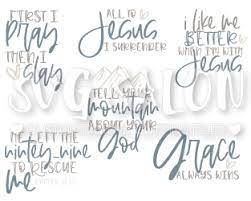 FIRST I
pray
THEN I
slay
ALL TO
Jesus
I SURRENDER
i like me
BETTER
WHEN I'M WITH
Jesus
TELL YOUR
mountain
ABOUT YOUR
God
HE LEFT THE
ninety-nine
TO RESCUE
me
Grace
ALWAYS WINS